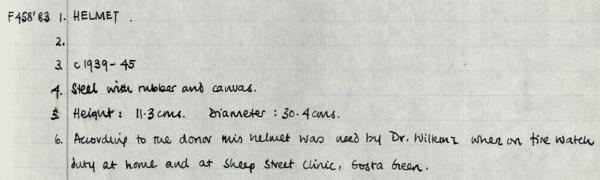 F458'83 1. HELMET.
2.
3. c 1939-45
4. Steel with rubber and canvas.
5. Height: 11.3 cms. Diameter: 30.4 cms.
6. According to the donor this helmet was used by Dr. Wilkins when on fire watch
duty at home and at Sheep Street Clinic, Gosta Green.